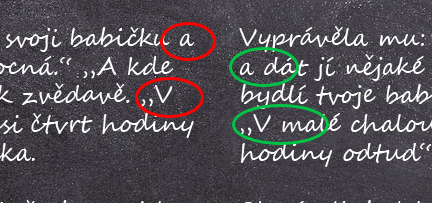 svoji babičku a
ocná.“ ,,A kde
k zvědavě. ,,V
si čtvrt hodiny
ka.
Vyprávěla mu:
a dát jí nějaké
bydlí tvoje bab
,,V malé chalou
hodiny odtud“